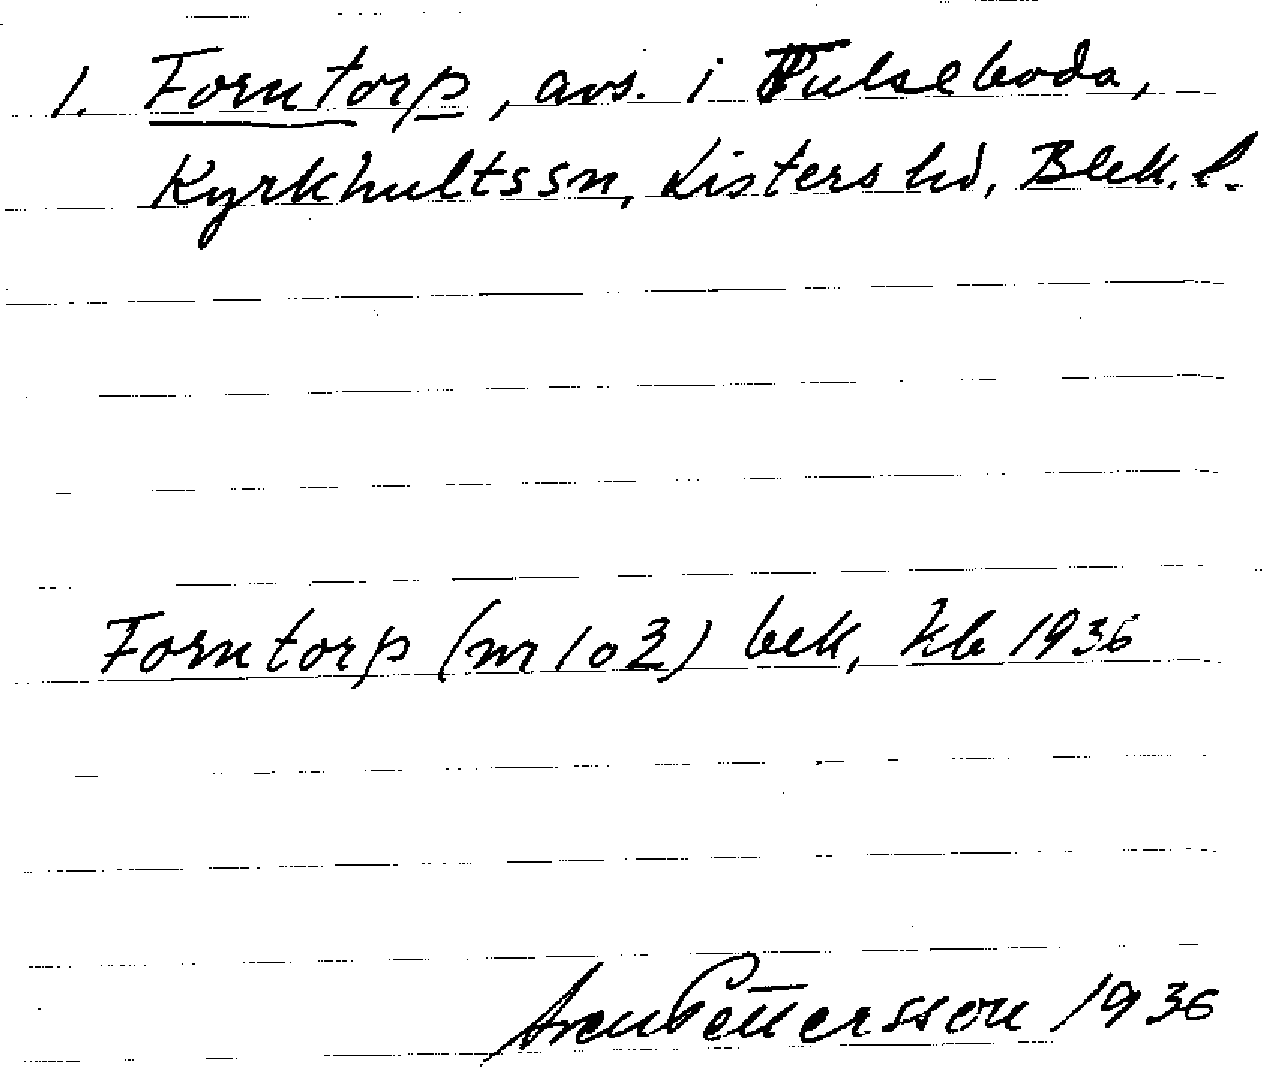 1. Forntorp, avs. i Tulseboda,
Kyrkhults sn, Listers hd, Blek. l.
Forntorp (nr 102) bek, kb 1936
Sven Pettersson 1936